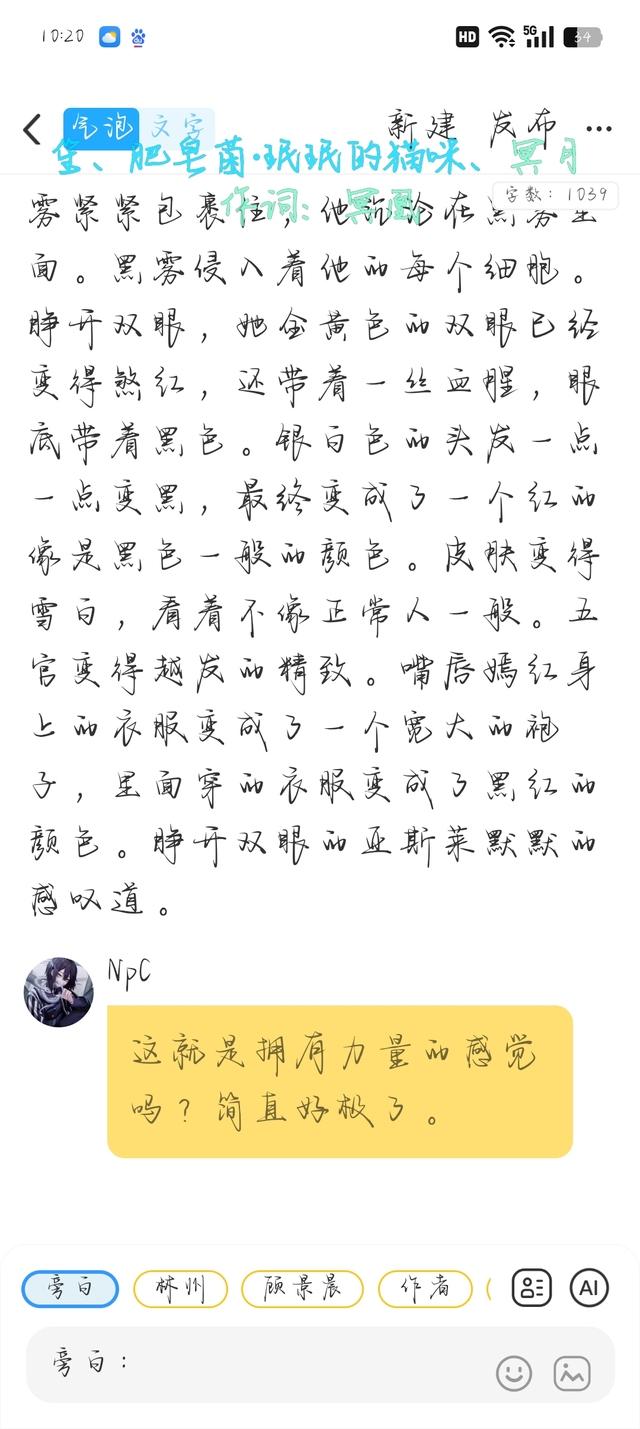 10:20 HD 5G 34
气泡 文字 新建 发布 ...
堡、肥皂菌·珉珉的猫咪、冥月
作词: 冥凰
字数: 1039
雾紧紧包裹住，他沉沦在黑雾里
面。黑雾侵入着他的每个细胞。
睁开双眼，她金黄色的双眼已经
变得煞红，还带着一丝血腥，眼
底带着黑色。银白色的头发一点
一点变黑，最终变成了一个红的
像是黑色一般的颜色。皮肤变得
雪白，看着不像正常人一般。五
官变得越发的精致。嘴唇嫣红身
上的衣服变成了一个宽大的袍
子，里面穿的衣服变成了黑红的
颜色。睁开双眼的亚斯莱默默的
感叹道。
NpC
这就是拥有力量的感觉
吗？简直好极了。
旁白 林州 顾景晨 作者 AI
旁白：